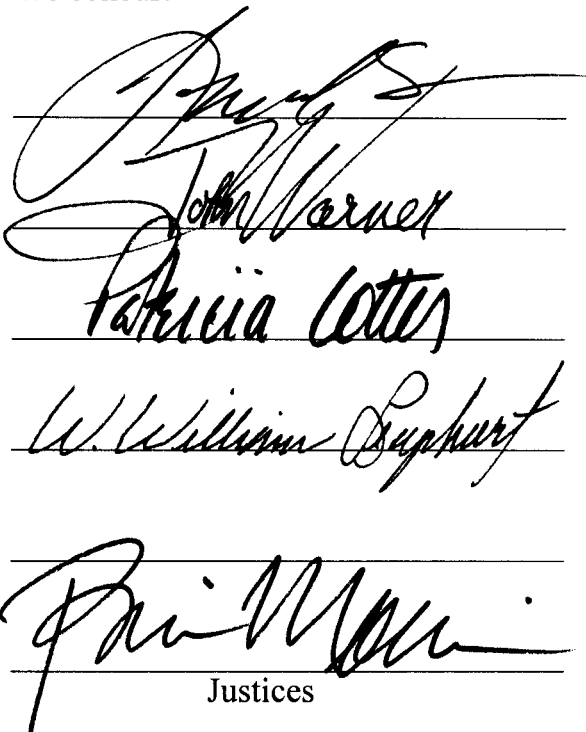 John Warner
Patricia Cotter
W. William Leaphart
Brian Morris
Justices